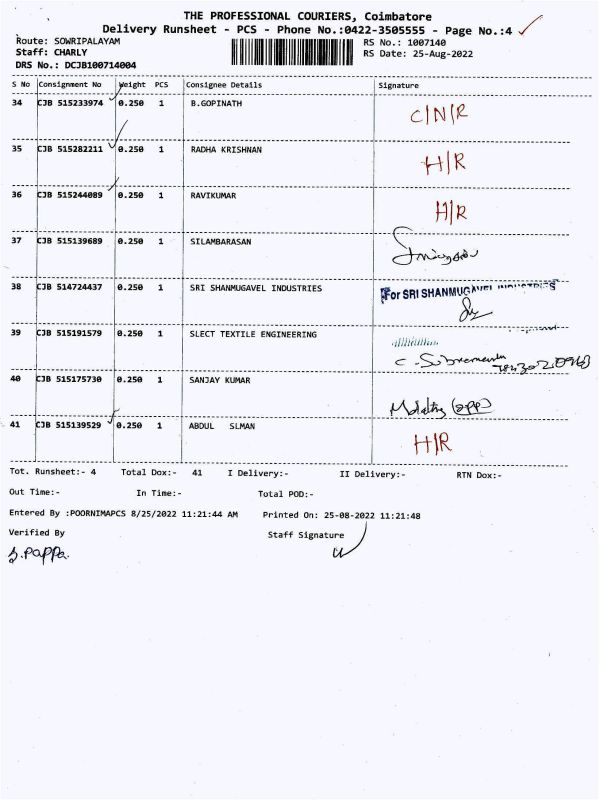 THE PROFESSIONAL COURIERS, Coimbatore
Delivery Runsheet - PCS - Phone No.:0422-3505555 - Page No.:4
Route: SOWRIPALAYAM RS No.: 1007140
Staff: CHARLY RS Date: 25-Aug-2022
DRS No.: DCJB100714004
S No Consignment No Weight PCS Consignee Details Signature
34 CJB 515233974 0.250 1 B.GOPINATH C/N/R
35 CJB 515282211 0.250 1 RADHA KRISHNAN H/R
36 CJB 515244089 0.250 1 RAVIKUMAR H/R
37 CJB 515139689 0.250 1 SILAMBARASAN
38 CJB 514724437 0.250 1 SRI SHANMUGAVEL INDUSTRIES For SRI SHANMUGAVEL INDUSTRIES
39 CJB 515191579 0.250 1 SLECT TEXTILE ENGINEERING
40 CJB 515175730 0.250 1 SANJAY KUMAR
41 CJB 515139529 0.250 1 ABDUL SLMAN H/R
Tot. Runsheet:- 4 Total Dox:- 41 I Delivery:- II Delivery:- RTN Dox:-
Out Time:- In Time:- Total POD:-
Entered By :POORNIMAPCS 8/25/2022 11:21:44 AM Printed On: 25-08-2022 11:21:48
Verified By Staff Signature
S.PAPPA.